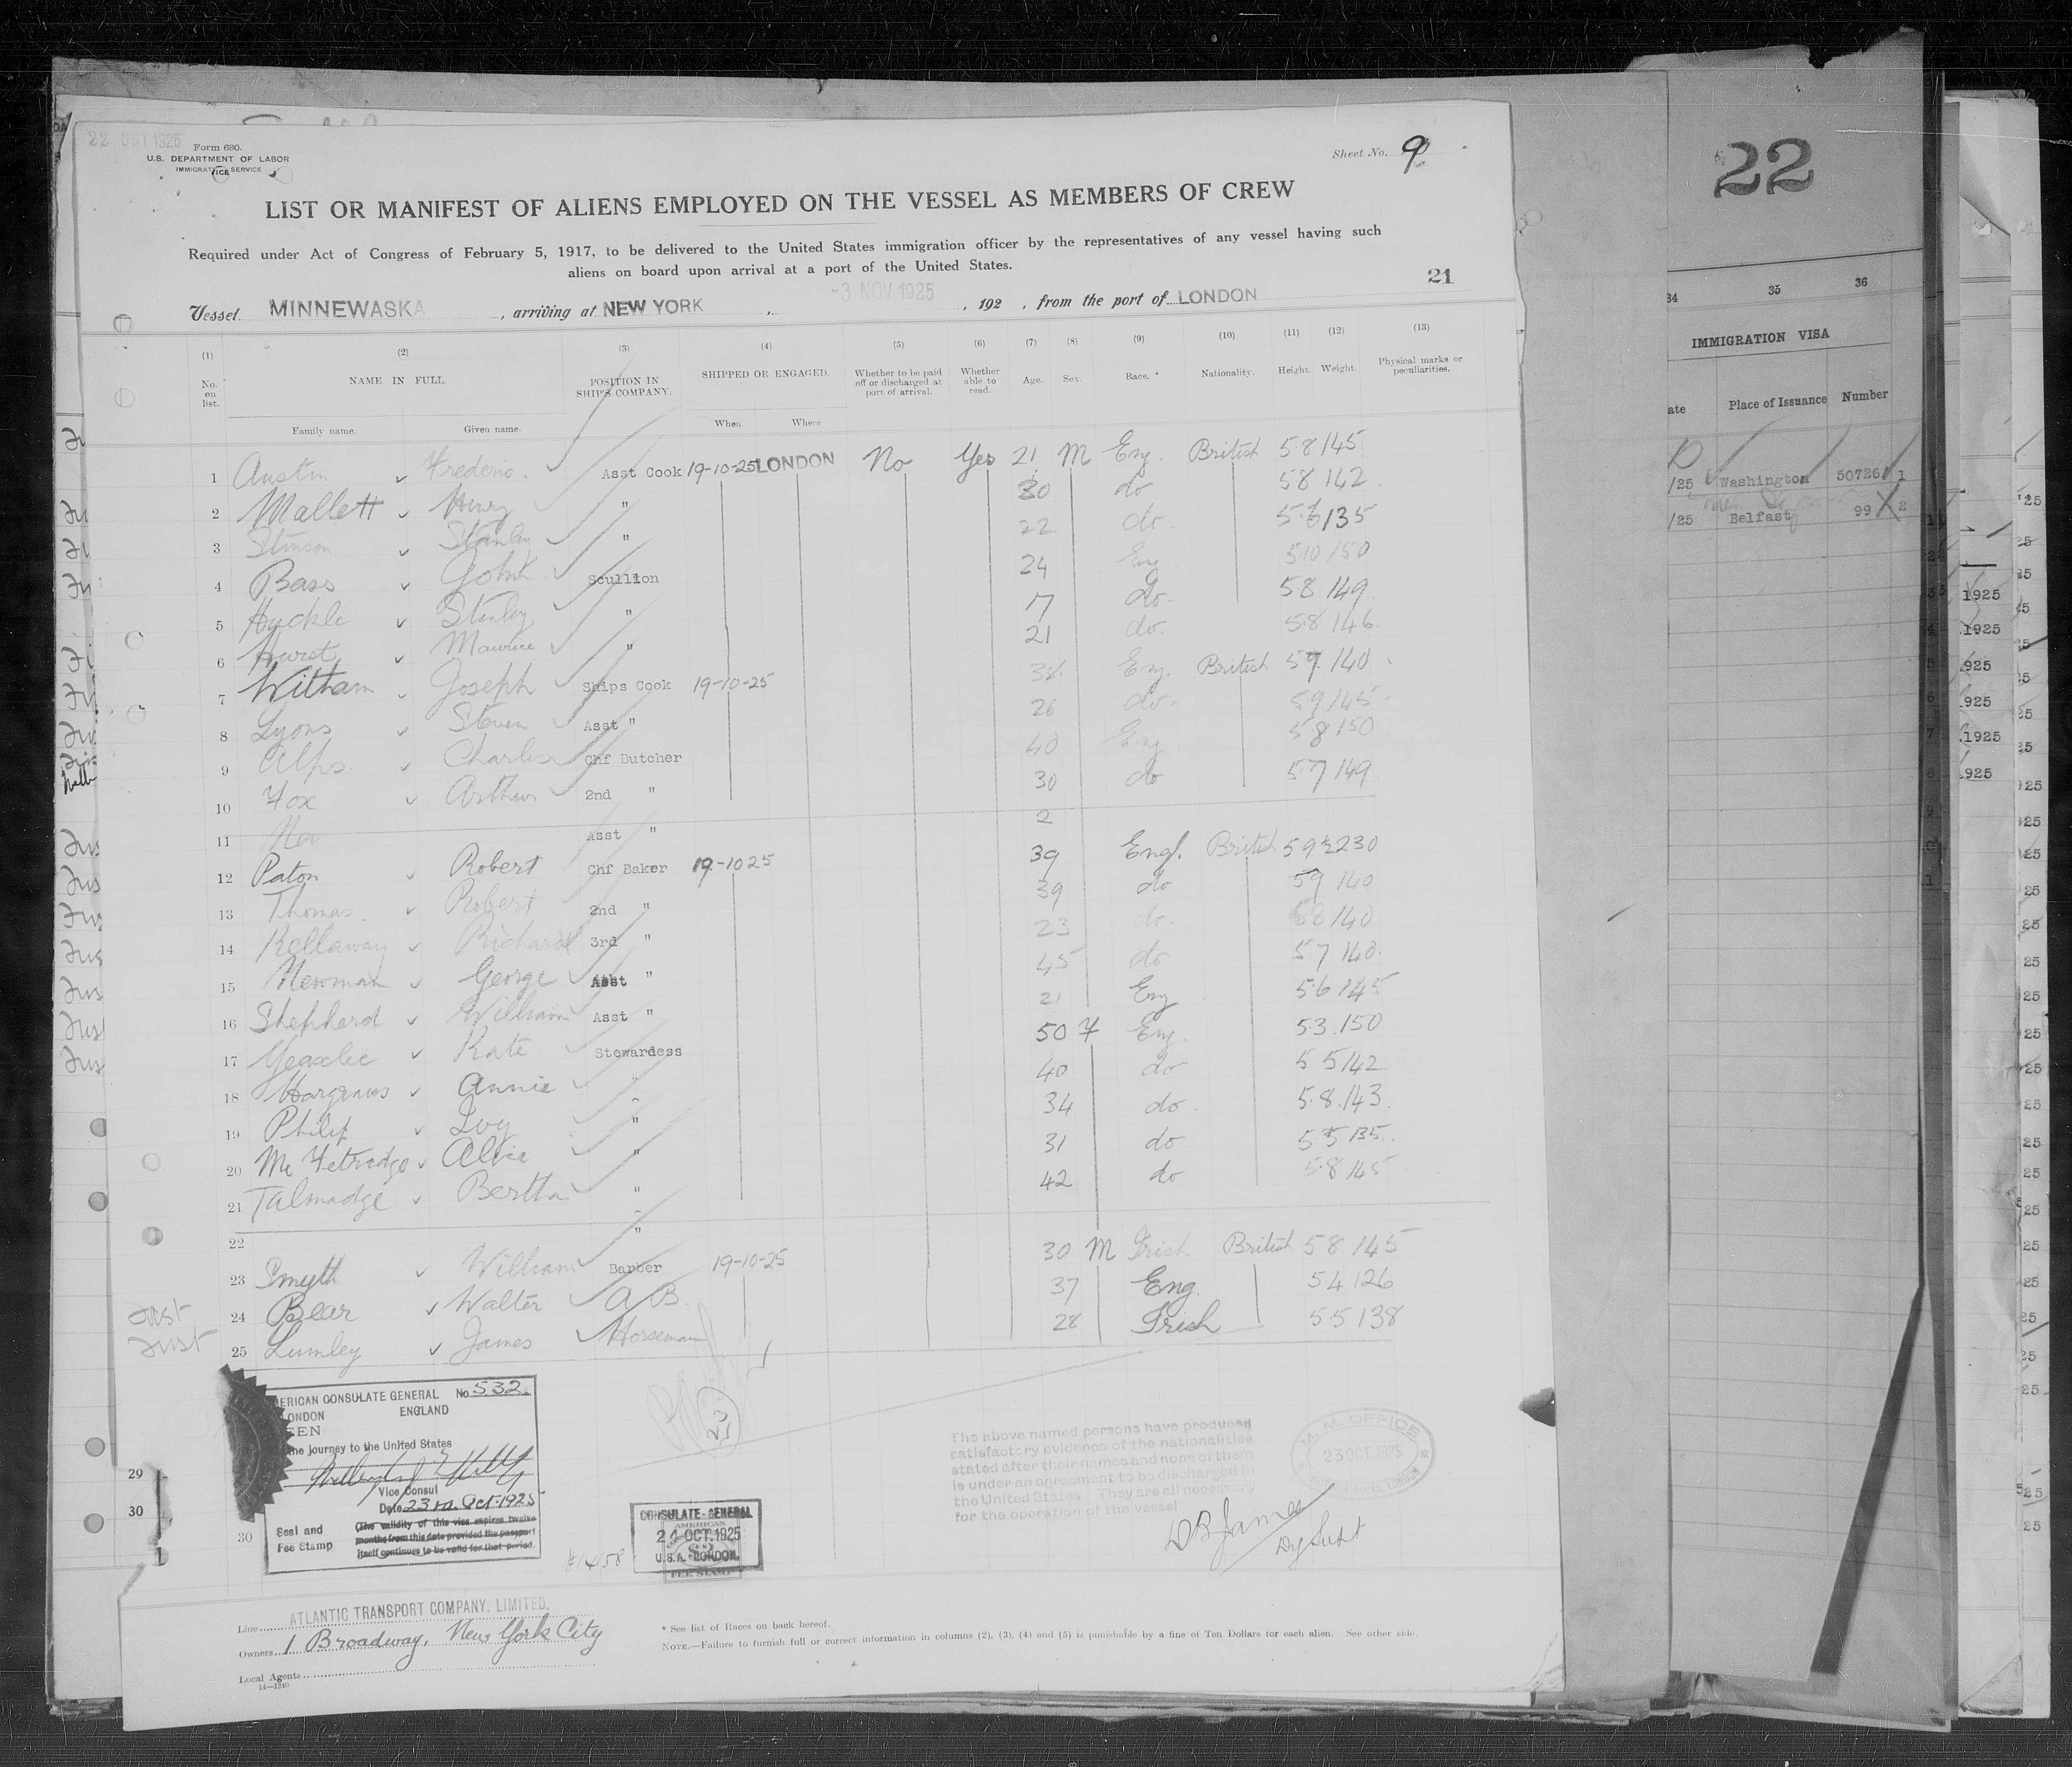 22 OCT 1925
Form 680.
U.S. DEPARTMENT OF LABOR
IMMIGRATION SERVICE
Sheet No. 9
LIST OR MANIFEST OF ALIENS EMPLOYED ON THE VESSEL AS MEMBERS OF CREW
Required under Act of Congress of February 5, 1917, to be delivered to the United States immigration officer by the representatives of any vessel having such
aliens on board upon arrival at a port of the United States.
21
Vessel MINNEWASKA, arriving at NEW YORK, -3 NOV 1925, 192 , from the port of LONDON
(1) (2) (3) (4) (5) (6) (7) (8) (9) (10) (11) (12) (13)
No. on list. NAME IN FULL. POSITION IN SHIP'S COMPANY. SHIPPED OR ENGAGED. Whether to be paid off or discharged at port of arrival. Whether able to read. Age. Sex. Race. * Nationality. Height. Weight. Physical marks or peculiarities.
Family name. Given name. When Where
1 Austin Asst Cook 19-10-25 LONDON No Yes 21 M Eng. British 5.8 145
2 Mallett Henry " 30 do 58 142
3 Stinson Stanley " 22 do. 5.6 135
4 Bass John Scullion 24 Eng 5.10 150
5 Huckle Stanley " 17 do. 5.8 149
6 Hurst Maurice " 21 do. 5.8 146
7 Witham Joseph Ships Cook 19-10-25 Eng. British 140
8 Lyons Steven Asst " 26 do. 59 145
9 Alps Charles Chf Butcher 40 Eng 58 150
10 Fox Arthur 2nd " 30 do 5.7 149
11 Asst " 2
12 Paton Robert Chf Baker 19-10 25 39 Engl. British 5 9½ 230
13 Thomas Robert 2nd " 39 do 59 140
14 Kellaway Richard 3rd " 23 do. 58 140
15 Newman George Asst " 45 do 5.7 140
16 Shepherd William Asst " 21 Eng 5.6 145
17 Yeaxlee Kate Stewardess 50 F Eng. 5.3 150
18 Hargraves Annie " 40 do 5 5 142
19 Philip Ivy " 34 do. 5.8 143
20 McFetridge " 31 do 5.5 135
21 Talmadge Bertha " 42 do 5.8 145
22 "
23 Smyth William Barber 19-10-25 30 M Irish British 58 145
24 Bear Walter A.B. 37 Eng. 5.4 126
25 Lumley James Horseman 28 Irish 5.5 138
AMERICAN CONSULATE GENERAL No 532
LONDON ENGLAND
SEEN
the journey to the United States
Vice Consul
Date 23rd. Oct. 1925
Seal and Fee Stamp
(The validity of this visa expires twelve
months from this date provided the passport
itself continues to be valid for that period.
29
30
30
23
#1458
CONSULATE-GENERAL
AMERICAN
24 OCT. 1925
U.S.A. LONDON
FEE STAMP
The above named persons have produced
satisfactory evidence of the nationalities
stated after their names and none of them
is under an agreement to be discharged in
the United States. They are all necessary
for the operation of the vessel
M. M. OFFICE
23 OCT. 1925
DB James
Dy Supt
Line ATLANTIC TRANSPORT COMPANY, LIMITED.
Owners 1 Broadway, New York City
Local Agents
14—1240
* See list of Races on back hereof.
NOTE.—Failure to furnish full or correct information in columns (2), (3), (4) and (5) is punishable by a fine of Ten Dollars for each alien. See other side.
22
34 35 36
IMMIGRATION VISA
Place of Issuance Number
/25 Washington 50726 1
/25 Belfast 99 2
1925
.1925
.925
.925
.1925
.925